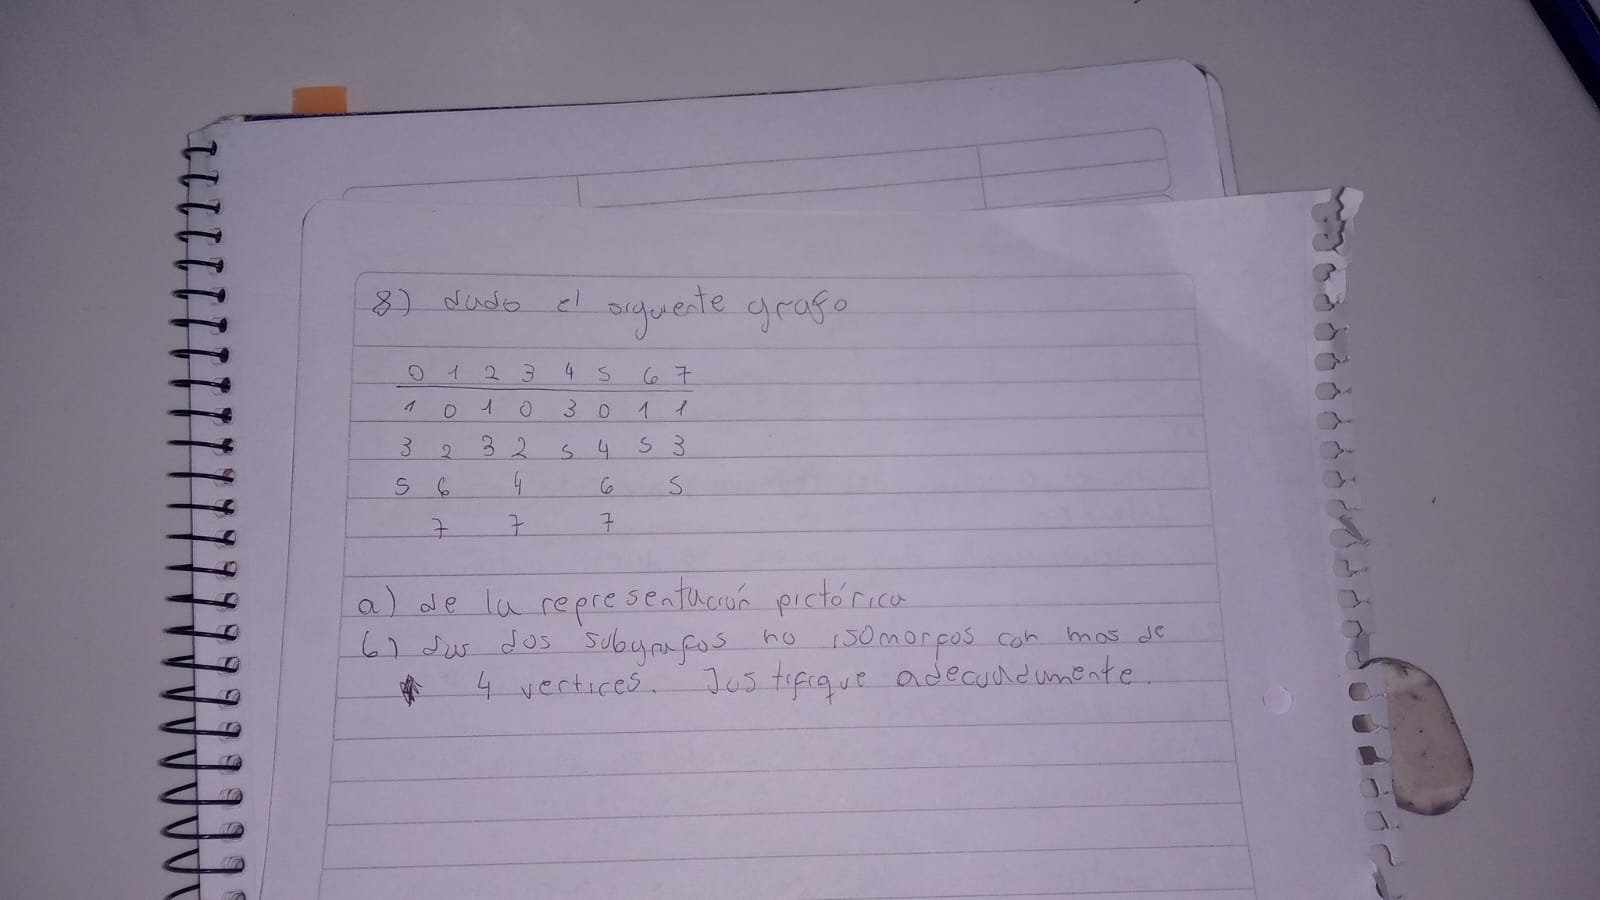 8) dado el siguiente grafo
0 1 2 3 4 5 6 7
1 0 1 0 3 0 1 1
3 2 3 2 5 4 5 3
5 6 4 6 5
7 7 7
a) de la representación pictórica
b) das dos subgrafos no isomorfos con mas de
4 vertices. Justifique adecuadamente.